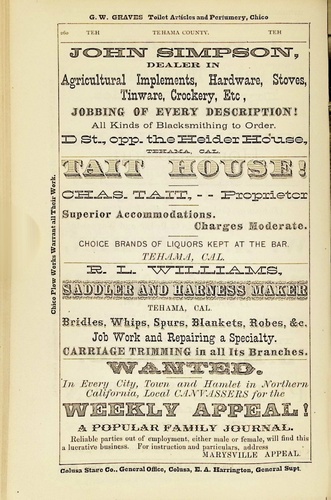 G. W. GRAVES Toilet Articles and Perfumery, Chico
260 TEH TEHAMA COUNTY. TEH
JOHN SIMPSON,
DEALER IN
Agricultural Implements, Hardware, Stoves,
Tinware, Crockery, Etc,
JOBBING OF EVERY DESCRIPTION!
All Kinds of Blacksmithing to Order.
D St., opp. the Heider House,
TEHAMA, CAL.
TAIT HOUSE!
CHAS. TAIT, -- Proprietor
Superior Accommodations.
Charges Moderate.
CHOICE BRANDS OF LIQUORS KEPT AT THE BAR.
TEHAMA, CAL.
R. L. WILLIAMS,
SADDLER AND HARNESS MAKER
TEHAMA, CAL.
Bridles, Whips, Spurs, Blankets, Robes, &c.
Job Work and Repairing a Specialty.
CARRIAGE TRIMMING in all Its Branches.
WANTED.
In Every City, Town and Hamlet in Northern
California, Local CANVASSERS for the
WEEKLY APPEAL!
A POPULAR FAMILY JOURNAL.
Reliable parties out of employment, either male or female, will find this
a lucrative business. For instruction and particulars, address
MARYSVILLE APPEAL.
Colusa Stage Co., General Office, Colusa, E. A. Harrington, General Supt.
Chico Plow Works Warrant all Their Work.